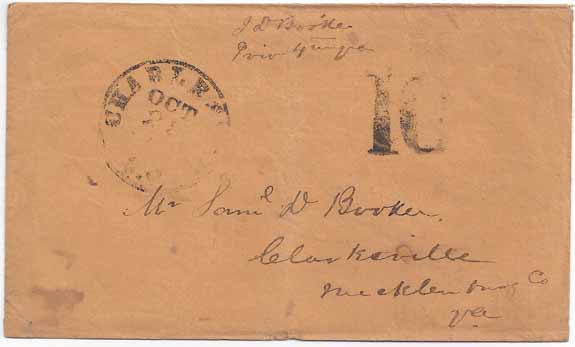 J D Booker
Priv 4 
CHARLE
OCT
10
Mr Saml D Booker.
Clarksville
Mecklenburg Co
Va